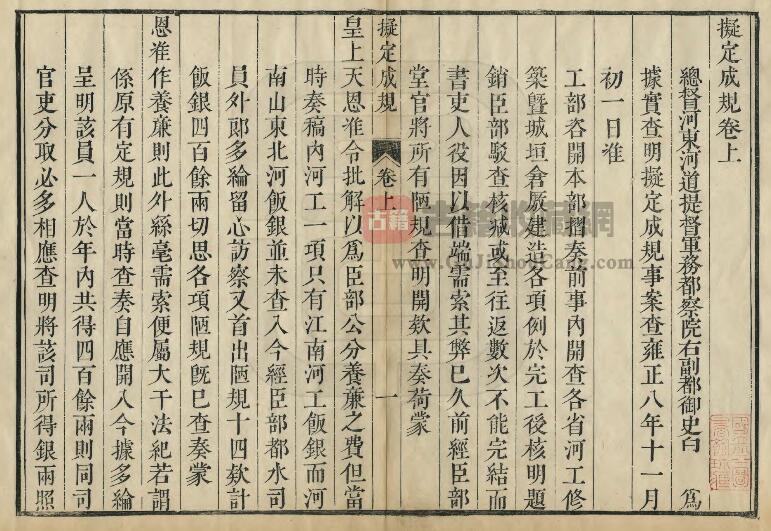 擬定成規卷上
總督河東河道提督軍務都察院右副都御史白　為
據實查明擬定成規事案查雍正八年十一月
初一日准
工部咨開本部摺奏前事內開查各省河工修
築暨城垣倉廒建造各項例於完工後核明題
銷臣部駁查核減或至往返數次不能完結而
書吏人役因以借端需索其弊已久前經臣部
堂官將所有陋規查明開欵具奏荷蒙
擬定成規　卷上　一
皇上天恩准令批解以為臣部公分養廉之費但當
時奏稿內河工一項只有江南河工飯銀而河
南山東北河飯銀並未查入今經臣部都水司
員外郎多綸留心訪察又首出陋規十四欵計
飯銀四百餘兩切思各項陋規旣已查奏蒙
恩准作養廉則此外絲毫需索便屬大干法紀若謂
係原有定規則當時查奏自應開入今據多綸
呈明該員一人於年內共得四百餘兩則同司
官吏分取必多相應查明將該司所得銀兩照
古籍 古籍收藏網
www.GuJiShouCang.com